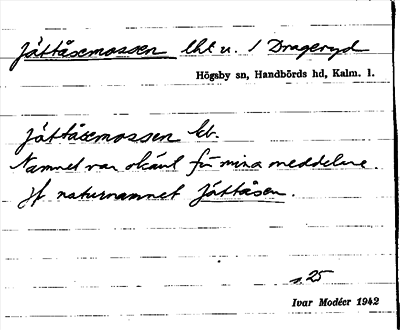 Jättåsemossen lht u. 1 Drageryd
Högsby sn, Handbörds hd, Kalm. l.
Jättåsemossen kb.
Namnet var okänt för mina meddelare.
Jf naturnamnet Jättåsen.
s. 25
Ivar Modéer 1942